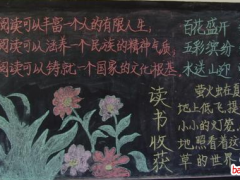 阅读可以丰富一个人的有限人生，
阅读可以滋养一个民族的精神气质，
阅读可以铸就一个国家的文化根基。
百花盛开
五彩缤纷
水送山迎
读书收获
萤火虫在夏
地上低飞提
小小的灯笼
地照看着这
草的世界